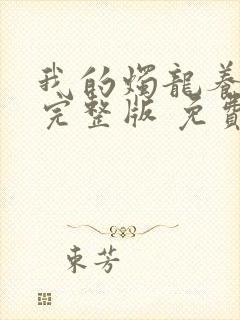 我的燭龍養
完整版 免費
東芳